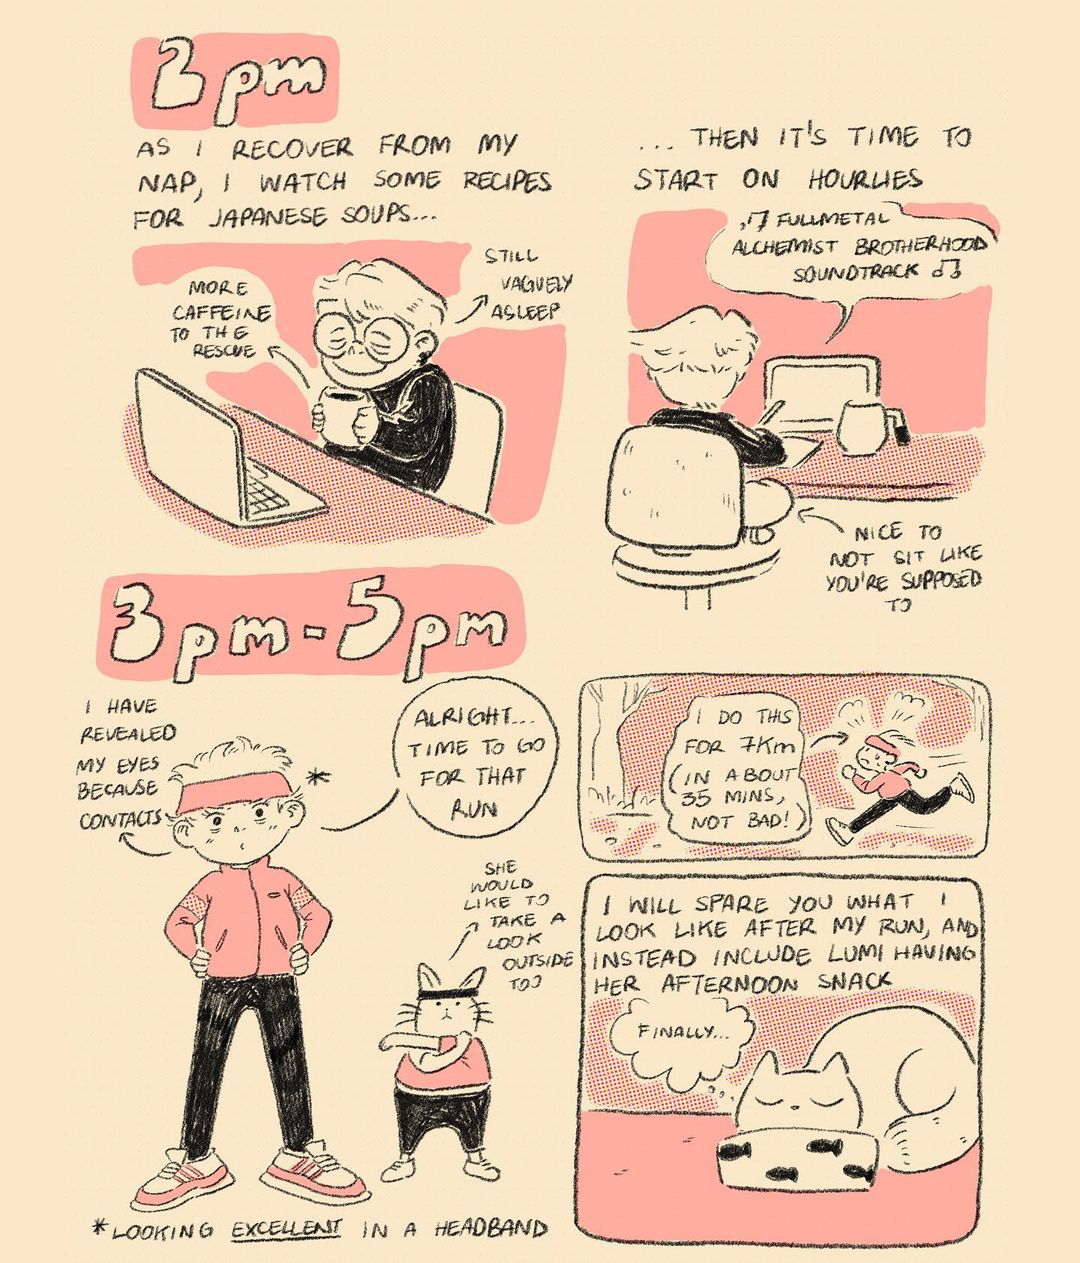 2pm
AS I RECOVER FROM MY
NAP, I WATCH SOME RECIPES
FOR JAPANESE SOUPS...
MORE
CAFFEINE
TO THE
RESCUE
STILL
VAGUELY
ASLEEP
... THEN IT'S TIME TO
START ON HOURLIES
♫ FULLMETAL
ALCHEMIST BROTHERHOOD
SOUNDTRACK ♫
NICE TO
NOT SIT LIKE
YOU'RE SUPPOSED
TO
3pm-5pm
I HAVE
REVEALED
MY EYES
BECAUSE
CONTACTS
*
ALRIGHT...
TIME TO GO
FOR THAT
RUN
SHE
WOULD
LIKE TO
TAKE A
LOOK
OUTSIDE
TOO
*LOOKING EXCELLENT IN A HEADBAND
I DO THIS
FOR 7Km
(IN ABOUT
35 MINS,
NOT BAD!)
I WILL SPARE YOU WHAT I
LOOK LIKE AFTER MY RUN, AND
INSTEAD INCLUDE LUMI HAVING
HER AFTERNOON SNACK
FINALLY...